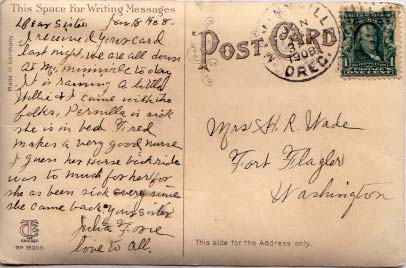 This Space For Writing Messages
Dear Sister Jan. 8 1908.
I received your card
last night, we are all down
at Mc.minnville today
It is raning a little
Willie & I came with the
folks, Permilla is sick
she is in bed Fred
makes a very good nurse
I guess her horse back ride
was to much for her for
she as been sick every since
she came back your sister
Julia
love to all.
Made in Germany.
POST CARD
JAN
1908
OREG.
ONE CENT
Mrs. H. R. Wade
Fort Flagler
Washington
This side for the Address only.
CHICAGO